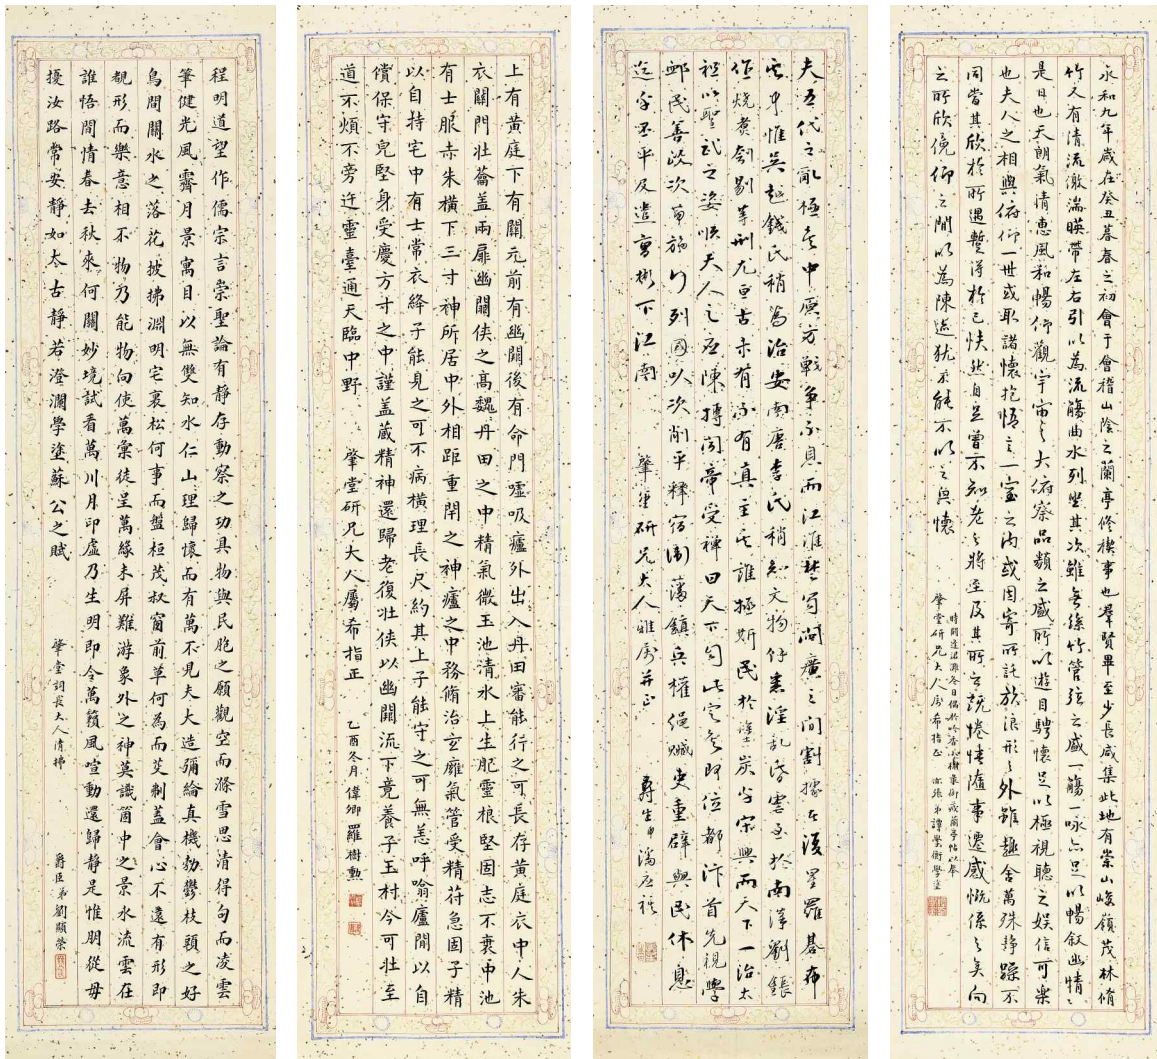 永和九年歲在癸丑暮春之初會于會稽山陰之蘭亭修禊事也羣賢畢至少長咸集此地有崇山峻嶺茂林脩
竹又有清流激湍暎帶左右引以為流觴曲水列坐其次雖無絲竹管弦之盛一觴一咏亦足以暢敘幽情
是日也天朗氣清惠風和暢仰觀宇宙之大俯察品類之盛所以遊目騁懷足以極視聽之娛信可樂
也夫人之相與俯仰一世或取諸懷抱悟言一室之內或因寄所託放浪形之外雖趣舍萬殊靜躁不
同當其欣於所遇暫得於己怏然自足曾不知老之將至及其所之既惓情隨事遷感慨係之矣向
之所欣俛仰之間以為陳迹猶不能不以之興懷
時閼逢涒灘冬日偶於吟香小榭蘭亭帖以奉
肇堂研兄大人屬希指正 弟譚學衡學塗
夫五代之亂極矣中原方戰爭不息而江淮楚蜀閩廣之間割據者復星羅碁布
其中惟吳越錢氏稍為治安南唐李氏稍知文物餘悉淫亂昏虐至於南漢劉鋹
作燒煮刳剔等刑尤亘古未有不有真主其誰拯斯民於塗炭哉宋興而天下一治太
祖以聖武之姿順天人之應陳摶聞帝受禪曰天下自此定矣即位都汴首先視學
卹民善政次第施行列國以次削平釋宿衛藩鎮兵權懲贓吏重辟與民休息
平及遣曹彬下江南 肇堂研兄大人雅屬并正 壽生 潘應祺
上有黃庭下有關元前有幽闕後有命門噓吸廬外出入丹田審能行之可長存黃庭衣中人朱
衣關門壯蘥蓋兩扉幽闕俠之高魏丹田之中精氣微玉池清水上生肥靈根堅固志不衰中池
有士服赤朱橫下三寸神所居中外相距重閇之神廬之中務脩治玄廱氣管受精苻急固子精
以自持宅中有士常衣絳子能見之可不病橫理長尺約其上子能守之可無恙呼噏廬閒以自
償保守皃堅身受慶方寸之中謹盖蔵精神還歸老復壯俠以幽闕流下竟養子玉村今可壯至
道不煩不旁迕靈臺通天臨中野 肇堂研兄大人屬希指正 乙酉冬月偉卿羅樹勳
程明道望作儒宗言崇聖論有靜存動察之功具物與民胞之願觀空而滌雪思清得句而凌雲
筆健光風霽月景寓目以無雙知水仁山理歸懷而有萬不見夫大造彌綸真機勃鬱枝頭之好
鳥間關水之落花披拂淵明宅裏松何事而盤桓茂叔窗前草何為而芟剃蓋會心不遠有形即
覩形而樂意相不物乃能物向使萬彙徒呈萬緣未屏難游象外之神莫識箇中之景水流雲在
誰悟閒情春去秋來何關妙境試看萬川月印虛乃生明即令萬籟風喧動還歸靜是惟朋從毋
擾汝路常安靜如太古靜若澄瀾學塗蘇公之賦 肇堂詞長大人清拂 爵臣弟劉顯榮